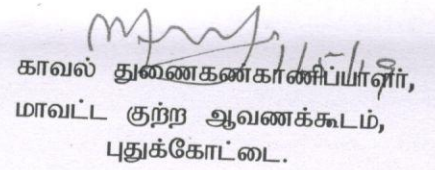 காவல் துணைகண்காணிப்பாளர்,
மாவட்ட குற்ற ஆவணக்கூடம்,
புதுக்கோட்டை.